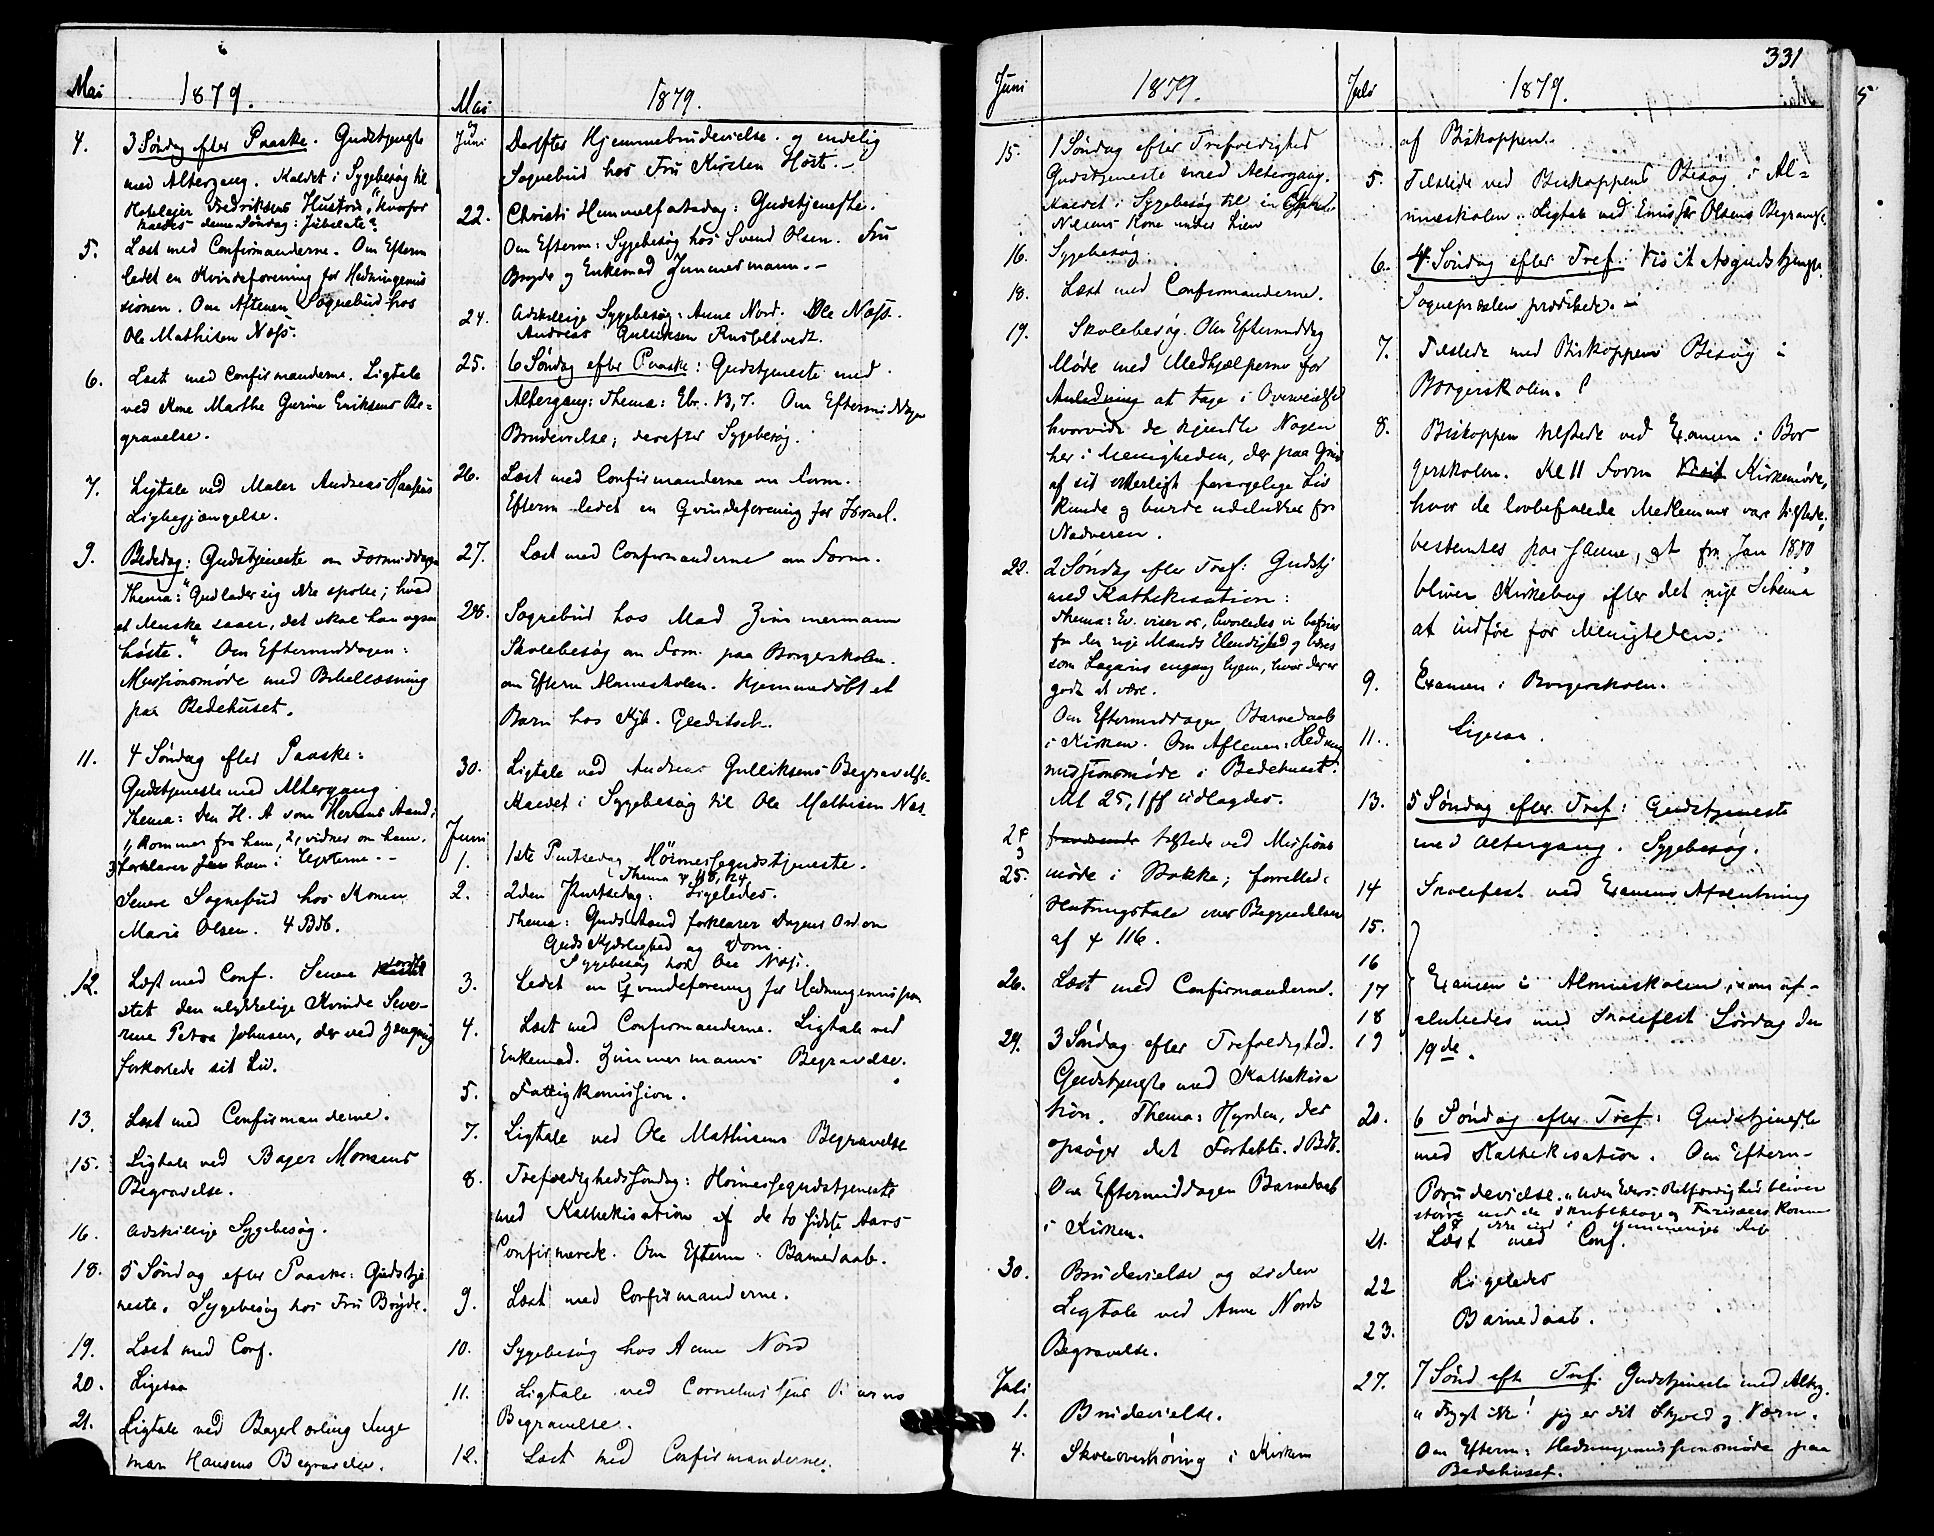 Mai 1879.
4. 3 Søndag efter Paaske. Gudstjeneste
med Altergang. Kaldet i Sygebesøg til
Hoteleier Fredriksens Hustru, "hvorfor
kaldes denne Søndag: Jubilate"
5. Læst med Confirmanderne. Om Efterm
ledet en Kvindeforening for Hedningemis
sionen. Om Aftenen Sognebud hos
Ole Mathisen Næss.
6. Læst med Confirmanderne. Ligtale
ved Kone Marthe Gurine Eriksens Be-
gravelse.
7. Ligtale ved Maler Andreas
Ligbegjængelse.
9. Bededag: Gudstjeneste om Formiddagen
Thema: "Gud lader sig ikke spotte; hvad
et Menske saaer, det skal han ogsaa
høste." Om Eftermiddagen:
Missionsmøde med Bibellæsning
paa Bedehuset.
11. 4 Søndag efter Paaske:
Gudstjeneste med Altergang
Thema: Den H. A som Herrens Aand:
1, kommer fra ham, 2, vidner om ham,
3 forklarer ham i
Senere Sognebud hos Konen
Marie Olsen. 4 Bdb.
12. Læst med Conf. Senere jordfæ
stet den ulykkelige Kvinde Seve-
rine Petra Johnsen, der ved Hængning
forkortede sit Liv.
13. Læst med Confirmanderne.
15. Ligtale ved Bager Monsens
Begravelse.
16. Adskillige Sygebesøg.
18. 5 Søndag efter Paaske: Gudstje
neste. Sygebesøg hos Fru Bryde.
19. Læst med Conf.
20. Ligesaa
21. Ligtale ved Bagerlærling Inge
mar Hansens Begravelse.
Mai og Juni 1879.
Derefter Hjemmebrudevielse og endelig
Sognebud hos Fru Kirsten Høst.-
22. Christi Himmelfartsdag: Gudstjeneste.
Om Efterm: Sygebesøg hos Svend Olsen. Fru
Bryde og Enkemad Zimmermann.-
24. Adskillige Sygebesøg: Anne Nord. Ole Næss.
Andreas Gulliksen
25. 6 Søndag efter Paaske: Gudstjeneste med
Altergang: Thema: Ebr. 13,7. Om Eftermiddagen
Brudevielse; derefter Sygebesøg.
26. Læst med Confirmanderne om Form.
Efterm ledet en Qvindeforening for Israel.
27. Læst med Confirmanderne om Form.
28. Sognebud hos Mad Zimmermann
Skolebesøg om Form. paa Borgerskolen.
om Efterm Almueskolen. Hjemmedøbt et
Barn hos Kjb. Gleditsch.
30. Ligtale ved Andreas Gulliksens Begravelse.
Kaldet i Sygebesøg til Ole Mathisen Næs-
Juni
1. 1ste Pintsedag Høimessegudstjeneste.
Thema ψ 118, 24
2. 2den Pintsedag: Ligeledes.
Thema: Guds Aand forklarer Dagens Ord om
Guds Kjærlighed og Dom.
Sygebesøg hos Ole Næss.
3. Ledet en Qvindeforening for Hedningemission
4. Læst med Confirmanderne. Ligtale ved
Enkemad. Zimmermanns Begravelse.
5. Fattigkomission.
7. Ligtale ved Ole Mathisens Begravelse
8. Trefoldighedssøndag: Høimessegudstjeneste
med Kathekisation af de to sidste Aars
Confirmerede. Om Efterm: Barnedaab.
9. Læst med Confirmanderne.
10. Sygebesøg hos Anne Nord
11. Ligtale ved Cornelius
Begravelse.
12. Læst med Confirmanderne.
Juni 1879.
15. 1 Søndag efter Trefoldighed
Gudstjeneste med Altergang.
Kaldet i Sygebesøg til en
Nilsens Kone under Lien
16. Sygebesøg.
18. Læst med Confirmanderne.
19. Skolebesøg. Om Eftermiddag
Møde med Medhjælperne for
Anledning at tage i Overveielse
hvorvidt de kjendte Nogen
her i Menigheden, der paa Grund
af sit vitterligt forargelige Liv
kunde og burde udelukkes fra
Nadveren.
22. 2 Søndag efter Tref: Gudstj
med Kathekisation:
Thema: Ev. viser os, hvorledes vi befries
fra den rige Mands Elendighed og bæres
som Lazarus engang hjem, hvor der er
godt at være.
Om Eftermiddagen Barnedaab
i Kirken. Om Aftenen: Hedning
missionsmøde i Bedehuset.
Mt 25, 1 ff udlagdes.
24 tilstede ved Missions
25. møde i Bakke; forrettede
Slutningstale over Begyndelsen
af ψ 116.
26. Læst med Confirmanderne.
29. 3 Søndag efter Trefoldighed.
Gudstjeneste med Kathekisa
tion. Thema: Hyrden, der
opsøger det Fortabte. 1 Bdb.
Om Eftermiddagen Barnedaab
i Kirken.
30. Brudevielse og siden
Ligtale ved Anne Nords
Begravelse.
Juli
1. Brudevielse.
4. Skoleoverhøring i Kirken
331
Juli 1879.
af Biskoppen.
5. Tilstede ved Biskoppens Besøg i Al-
mueskolen. Ligtale ved Olsens Begravelse.
6. 4 Søndag efter Tref. Visitasgudstjeneste.
Sognepræsten prædikede.-
7. Tilstede med Biskoppens Besøg i
Borgerskolen.
8. Biskoppen tilstede ved Examen i Bor
gerskolen. Kl 11 Form Visit Kirkemøde,
hvor de lovbefalede Medlemmer vare tilstede;
bestemtes paa samme, at fra Jan 1880
bliver Kirkebog efter det nye Schema
at indføre for Menigheden.
9. Examen i Borgerskolen.
11. Ligesaa.
13. 5 Søndag efter Tref: Gudstjeneste
med Altergang. Sygebesøg.
14 Skolefest ved Examens Afslutning
15.
16
17 Examen i Almueskolen, som af-
18 sluttedes med Skolefest Lørdag den
19 19de.
20. 6 Søndag efter Tref: Gudstjeneste
med Kathekisation. Om Efterm-
Brudevielse. "Uden Eders Retfærdighed bliver
større end de Skriftkloge og Farisæers, komme
I ikke ind i Himmeriges Rige
21. Læst med Conf.
22 Ligeledes
23. Barnedaab.
27. 7 Sønd eft Tref. Gudstjeneste med Alterg.
"Frygt ikke! jeg er dit Skjold og Værn.
Om Efterm: Hedningemissionsmøde paa
Bedehuset.